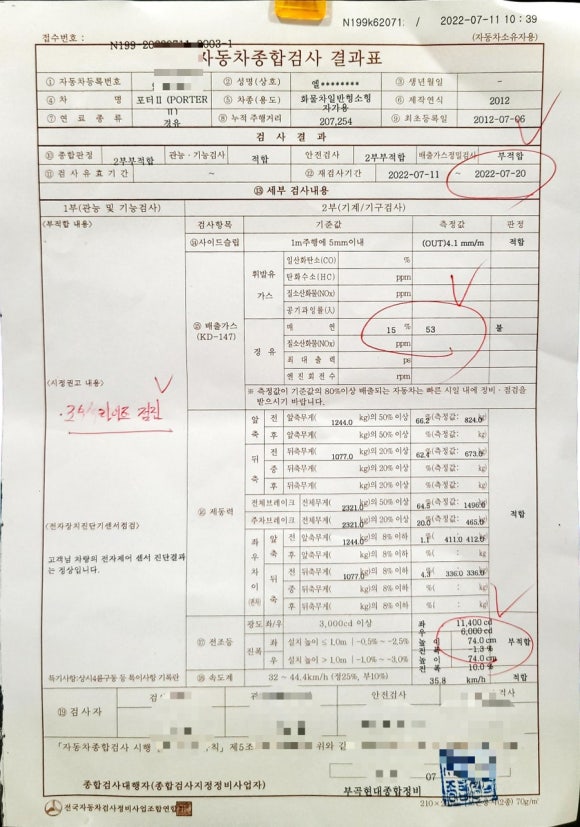 N199k62071: / 2022-07-11 10:39
접수번호 : N199- -0003-1 (자동차소유자용)
자동차종합검사 결과표
① 자동차등록번호 ② 성명(상호) 엘******** ③ 생년월일 -
④ 차 명 포터Ⅱ (PORTER Ⅱ) ⑤ 차종(용도) 화물차일반형소형 자가용 ⑥ 제작연식 2012
⑦ 연료종류 경유 ⑧ 누적 주행거리 207,254 ⑨ 최초등록일 2012-07-06
검 사 결 과
⑩ 종합판정 2부부적합 관능·기능검사 적합 안전검사 2부부적합 배출가스정밀검사 부적합
⑪ 검사유효기간 ~ ⑫ 재검사기간 2022-07-11 ~ 2022-07-20
⑬ 세부 검사내용
1부(관능 및 기능검사) 2부(기계/기구검사)
<부적합 내용> 검사항목 기준값 측정값 판정
⑭사이드슬립 1m주행에 5mm이내 (OUT)4.1 mm/m 적합
⑮ 배출가스 (KD-147)
휘발유 가스 일산화탄소(CO) %
탄화수소(HC) ppm
질소산화물(NOx) ppm
공기과잉률(λ)
경 유 매 연 15 % 53 불
질소산화물(NOx) ppm
최 대 출 력 ps
엔진회전수 rpm
※ 측정값이 기준값의 80%이상 배출되는 자동차는 빠른 시일 내에 정비·점검을 받으시기 바랍니다.
<시정권고 내용>
⑯ 제동력
앞축 전 앞축무게( 1244.0 kg)의 50% 이상 66.2 %(측정값: 824.0 kg) 적합
후 앞축무게( kg)의 50% 이상 %(측정값: kg)
뒤축 전 뒤축무게( 1077.0 kg)의 20% 이상 62.4 %(측정값: 673.0 kg)
중 뒤축무게( kg)의 20% 이상 %(측정값: kg)
후 뒤축무게( kg)의 20% 이상 %(측정값: kg)
전체브레이크 전체무게( 2321.0 kg)의 50% 이상 64.5 %(측정값: 1496.0 kg)
주차브레이크 전체무게( 2321.0 kg)의 20% 이상 20.0 %(측정값: 465.0 kg)
<전자장치진단기센서점검>
고객님 차량의 전자제어 센서 진단결과는 정상입니다.
좌우차이(편차) 앞축 전 앞축무게( 1244.0 kg)의 8% 이하 1.1 %( 411.0 412.0 kg)
후 앞축무게( kg)의 8% 이하 %( : kg)
뒤축 전 뒤축무게( 1077.0 kg)의 8% 이하 4.3 %( 336.0 336.0 kg)
중 뒤축무게( kg)의 8% 이하 %( : kg)
후 뒤축무게( kg)의 8% 이하 %( : kg)
⑰ 전조등 광도 좌/우 3,000cd 이상 좌 11,400 cd 우 6,000 cd 부적합
진폭 좌 설치 높이 ≤ 1.0m | -0.5% ~ -2.5% 높이 74.0 cm 진폭 -1.3 %
우 설치 높이 > 1.0m | -1.0% ~ -3.0% 높이 74.0 cm 진폭 10.0 %
특기사항:상시4륜구동 등 특이사항 기록란 ⑱ 속도계 32 ~ 44.4km/h (정25%, 부10%) 35.8 km/h 적합
⑲ 검사자 안전검사
「자동차종합검사 시행 칙」 제5조 위와 같
07
종합검사대행자(종합검사지정정비사업자) 부곡현대종합정비
전국자동차검사정비사업조합연합회 70g/㎡